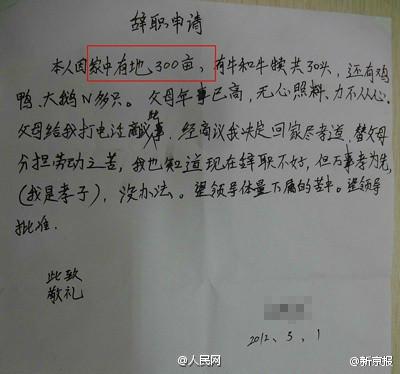 辞职申请
本人因家中有地300亩、有牛和牛犊共30头,还有鸡
鸭、大鹅N多只。父母年事已高,无心照料、力不从心。
父母给我打电话商议事,经商议我决定回家尽孝道,替父母
分担劳动之苦,我也知道现在辞职不好,但万事孝为先,
(我是孝子),没办法。望领导体量下属的苦中。望领导
批准。
此致
敬礼
2012、5、1
@人民网
@新京报